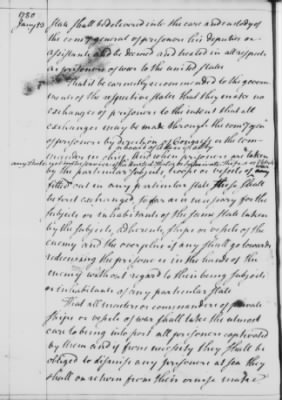 1780
Jany 13
State shall be delivered into the care and custody of
the comy general of prisoners his deputies or
assistants and be deemed and treated in all respects
as prisoners of war to the united states
That it be earnestly recommended to the govern
ments of the respective states that they make no
exchanges of prisoners to the intent that all
exchanges may be made through the comy gen
of prisoners by direction of Congress or the com
mander in chief. And when prisoners are taken
by the particular subjects, troops or vessels of any
fitted out in any particular state those shall
be first exchanged, so far as necessary for the
subjects or inhabitants of the same state taken
by the subjects, adherents, ships or vessels of the
enemy and the overplus if any shall go towards
redeeming the prisoners in the hands of the
enemy without regard to their being subjects
or inhabitants of any particular state
That all masters or commanders of private
ships or vessels of war shall take the utmost
care to bring into port all prisoners captivated
by them and if from necessity they shall be
obliged to dismiss any prisoners at sea they
shall on return from their cruise make